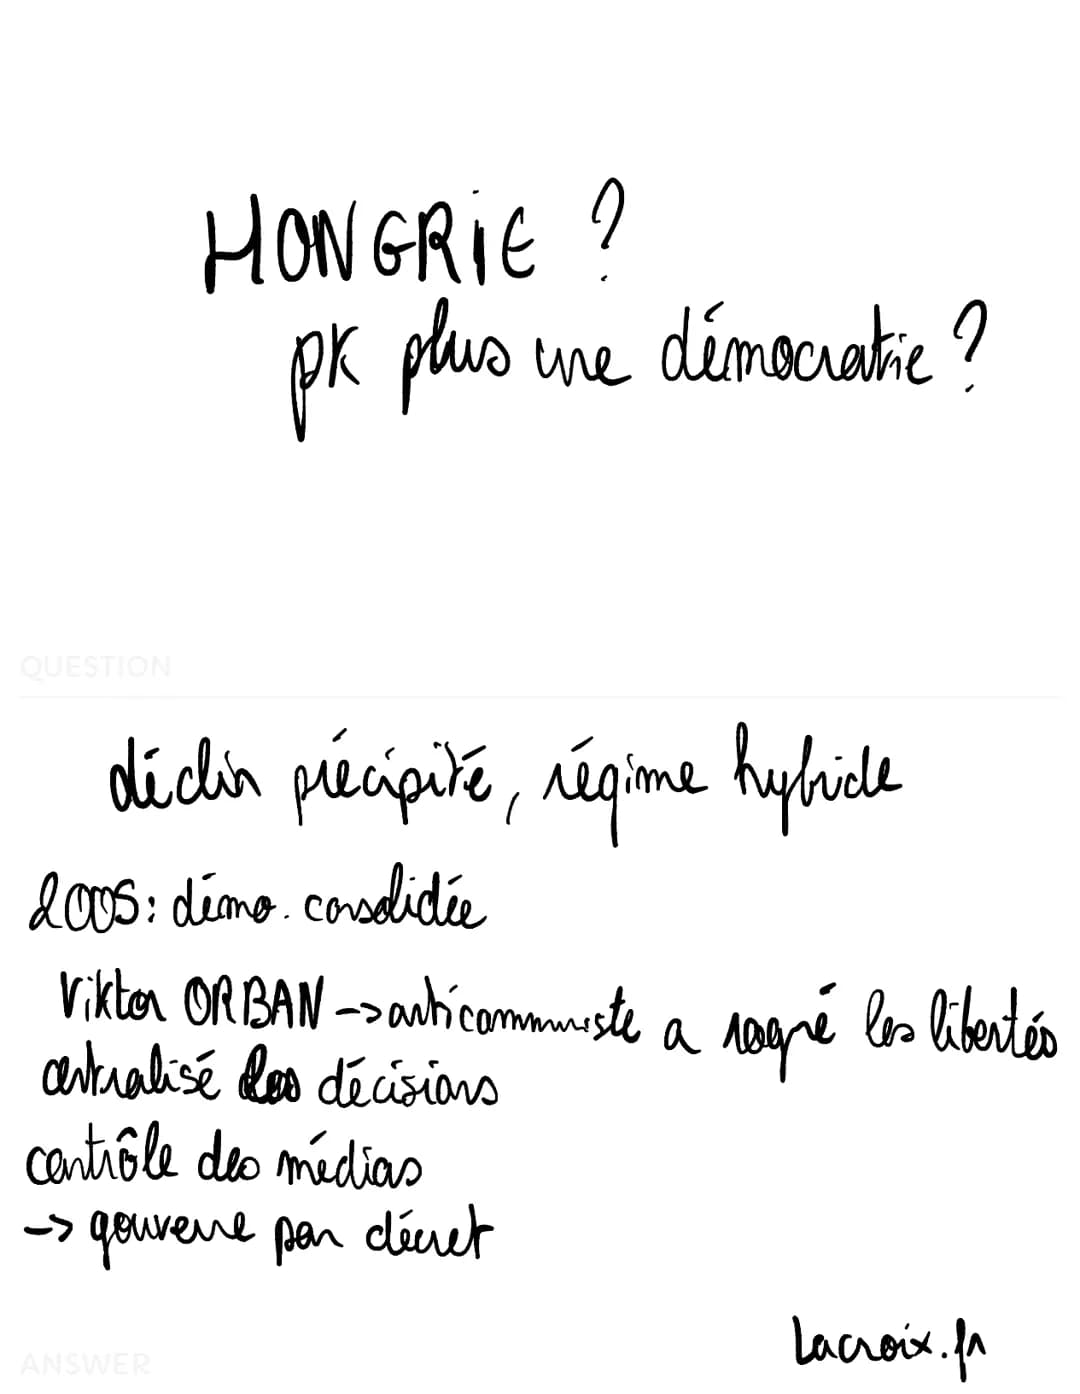 HONGRIE ?
pk plus une démocratie ?
QUESTION
déclin précipité, régime hybride
2005 : démo. consolidée
Viktor ORBAN -> anticommuniste a rogné les libertés
centralisé les décisions
contrôle des médias
-> gouverne par décret
Lacroix.fr
ANSWER